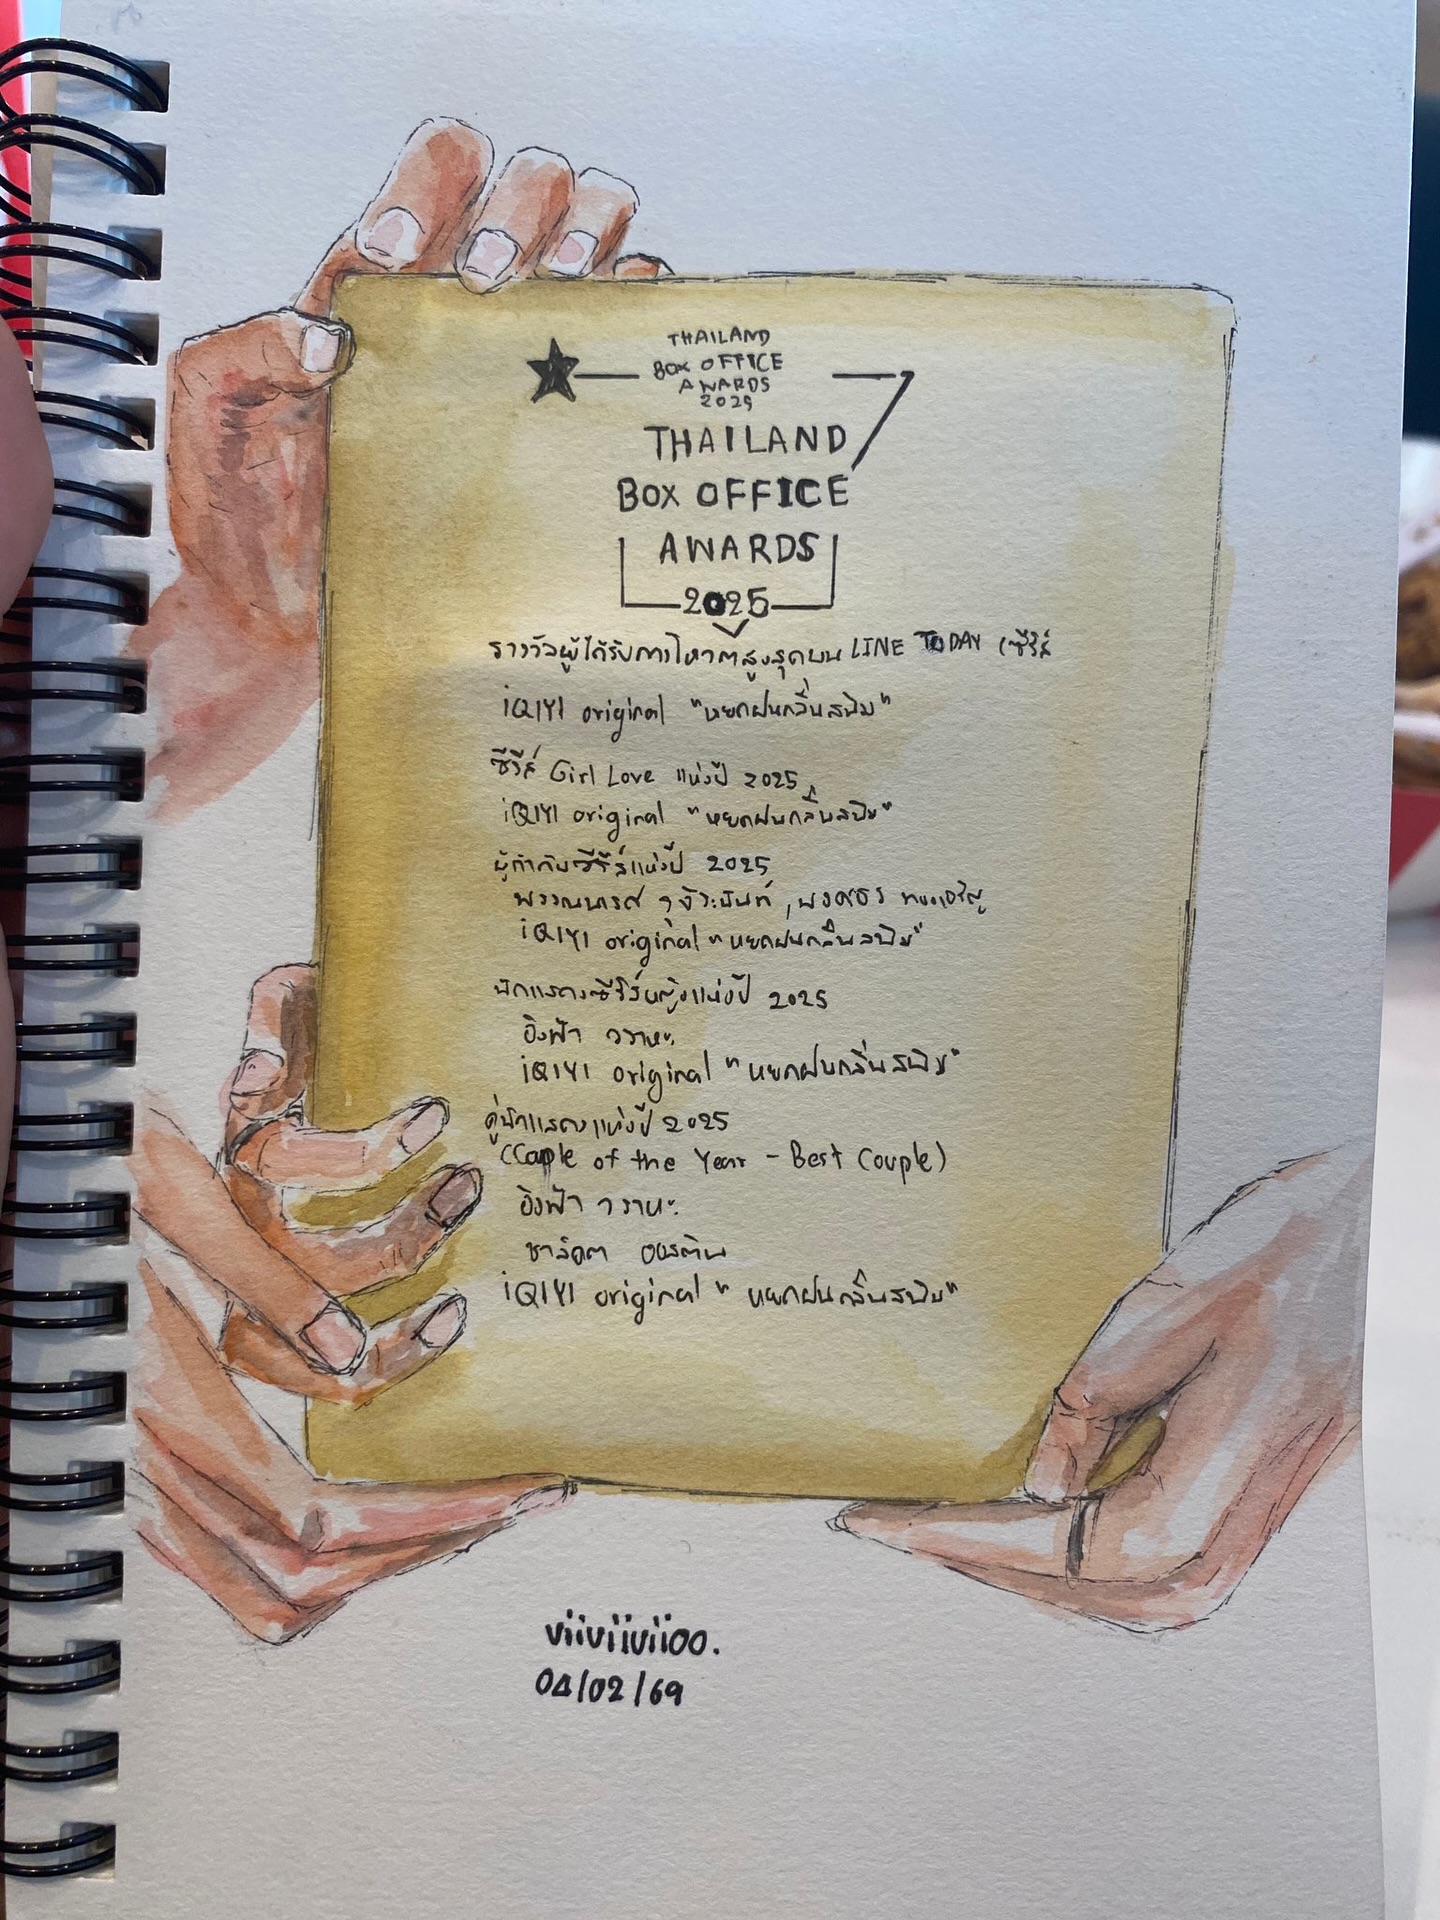 THAILAND
BOX OFFICE
AWARDS
2025
THAILAND
BOX OFFICE
AWARDS
2025
รางวัลผู้ได้รับการโหวตสูงสุดบน LINE TODAY (ซีรีส์
iQIYI original "หยดฝนกลิ่นสนิม"
ซีรีส์ Girl Love แห่งปี 2025
iQIYI original "หยดฝนกลิ่นสนิม"
ผู้กำกับซีรีส์แห่งปี 2025
พรรณนเรศ วุจีระนันท์ , พงศธร ทองเจริญ
iQIYI original "หยดฝนกลิ่นสนิม"
นักแสดงซีรีส์หญิงแห่งปี 2025
อิงฟ้า วราหะ
iQIYI original "หยดฝนกลิ่นสนิม"
คู่นักแสดงแห่งปี 2025
(Couple of the Year - Best Couple)
อิงฟ้า วราหะ
ชาล็อต ออสติน
iQIYI original "หยดฝนกลิ่นสนิม"
viiviiviioo.
04/02/69